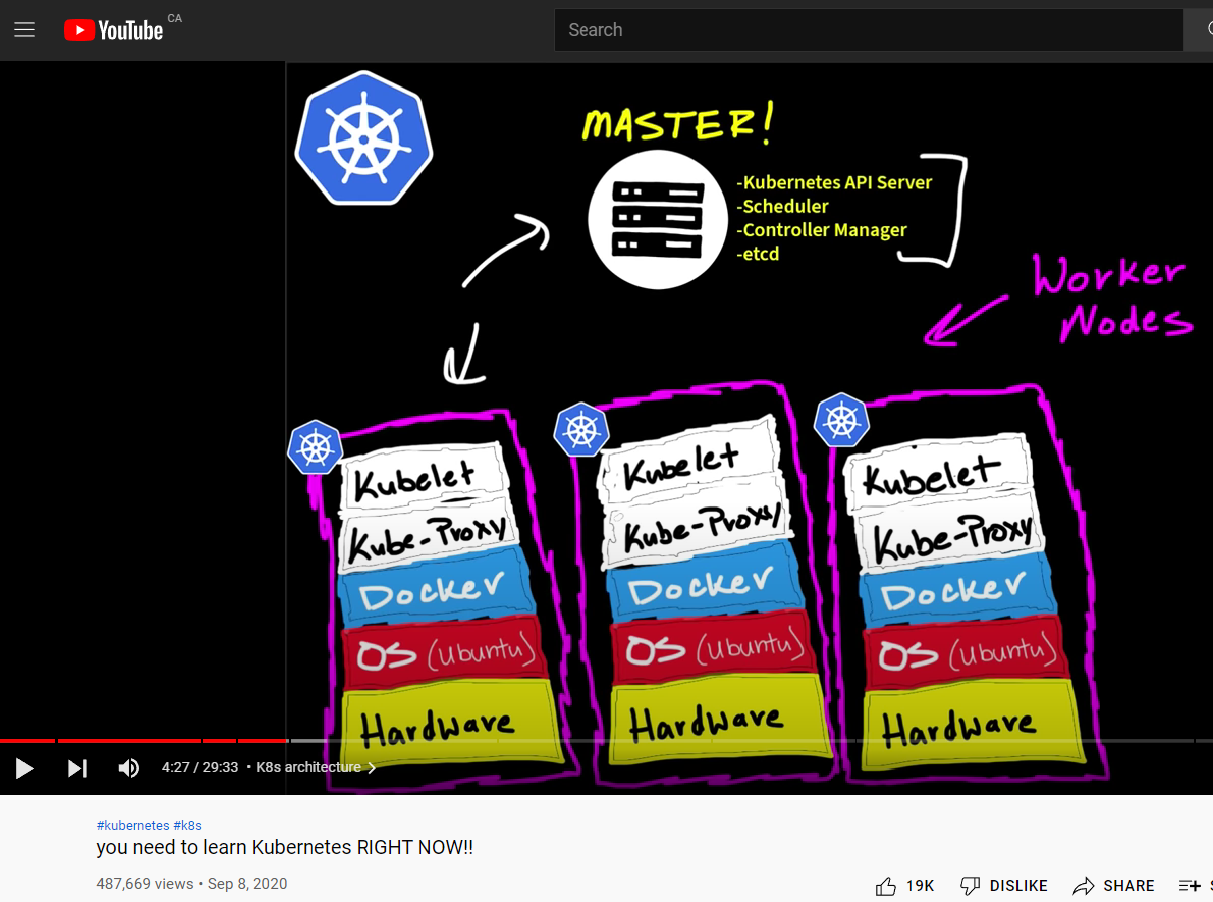 YouTube CA
Search
MASTER!
-Kubernetes API Server
-Scheduler
-Controller Manager
-etcd
Worker
Nodes
Kubelet
Kube-Proxy
Docker
OS (Ubuntu)
Hardware
Kubelet
Kube-Proxy
Docker
OS (Ubuntu)
Hardware
Kubelet
Kube-Proxy
Docker
OS (Ubuntu)
Hardware
4:27 / 29:33 • K8s architecture
#kubernetes #k8s
you need to learn Kubernetes RIGHT NOW!!
487,669 views • Sep 8, 2020
19K DISLIKE SHARE